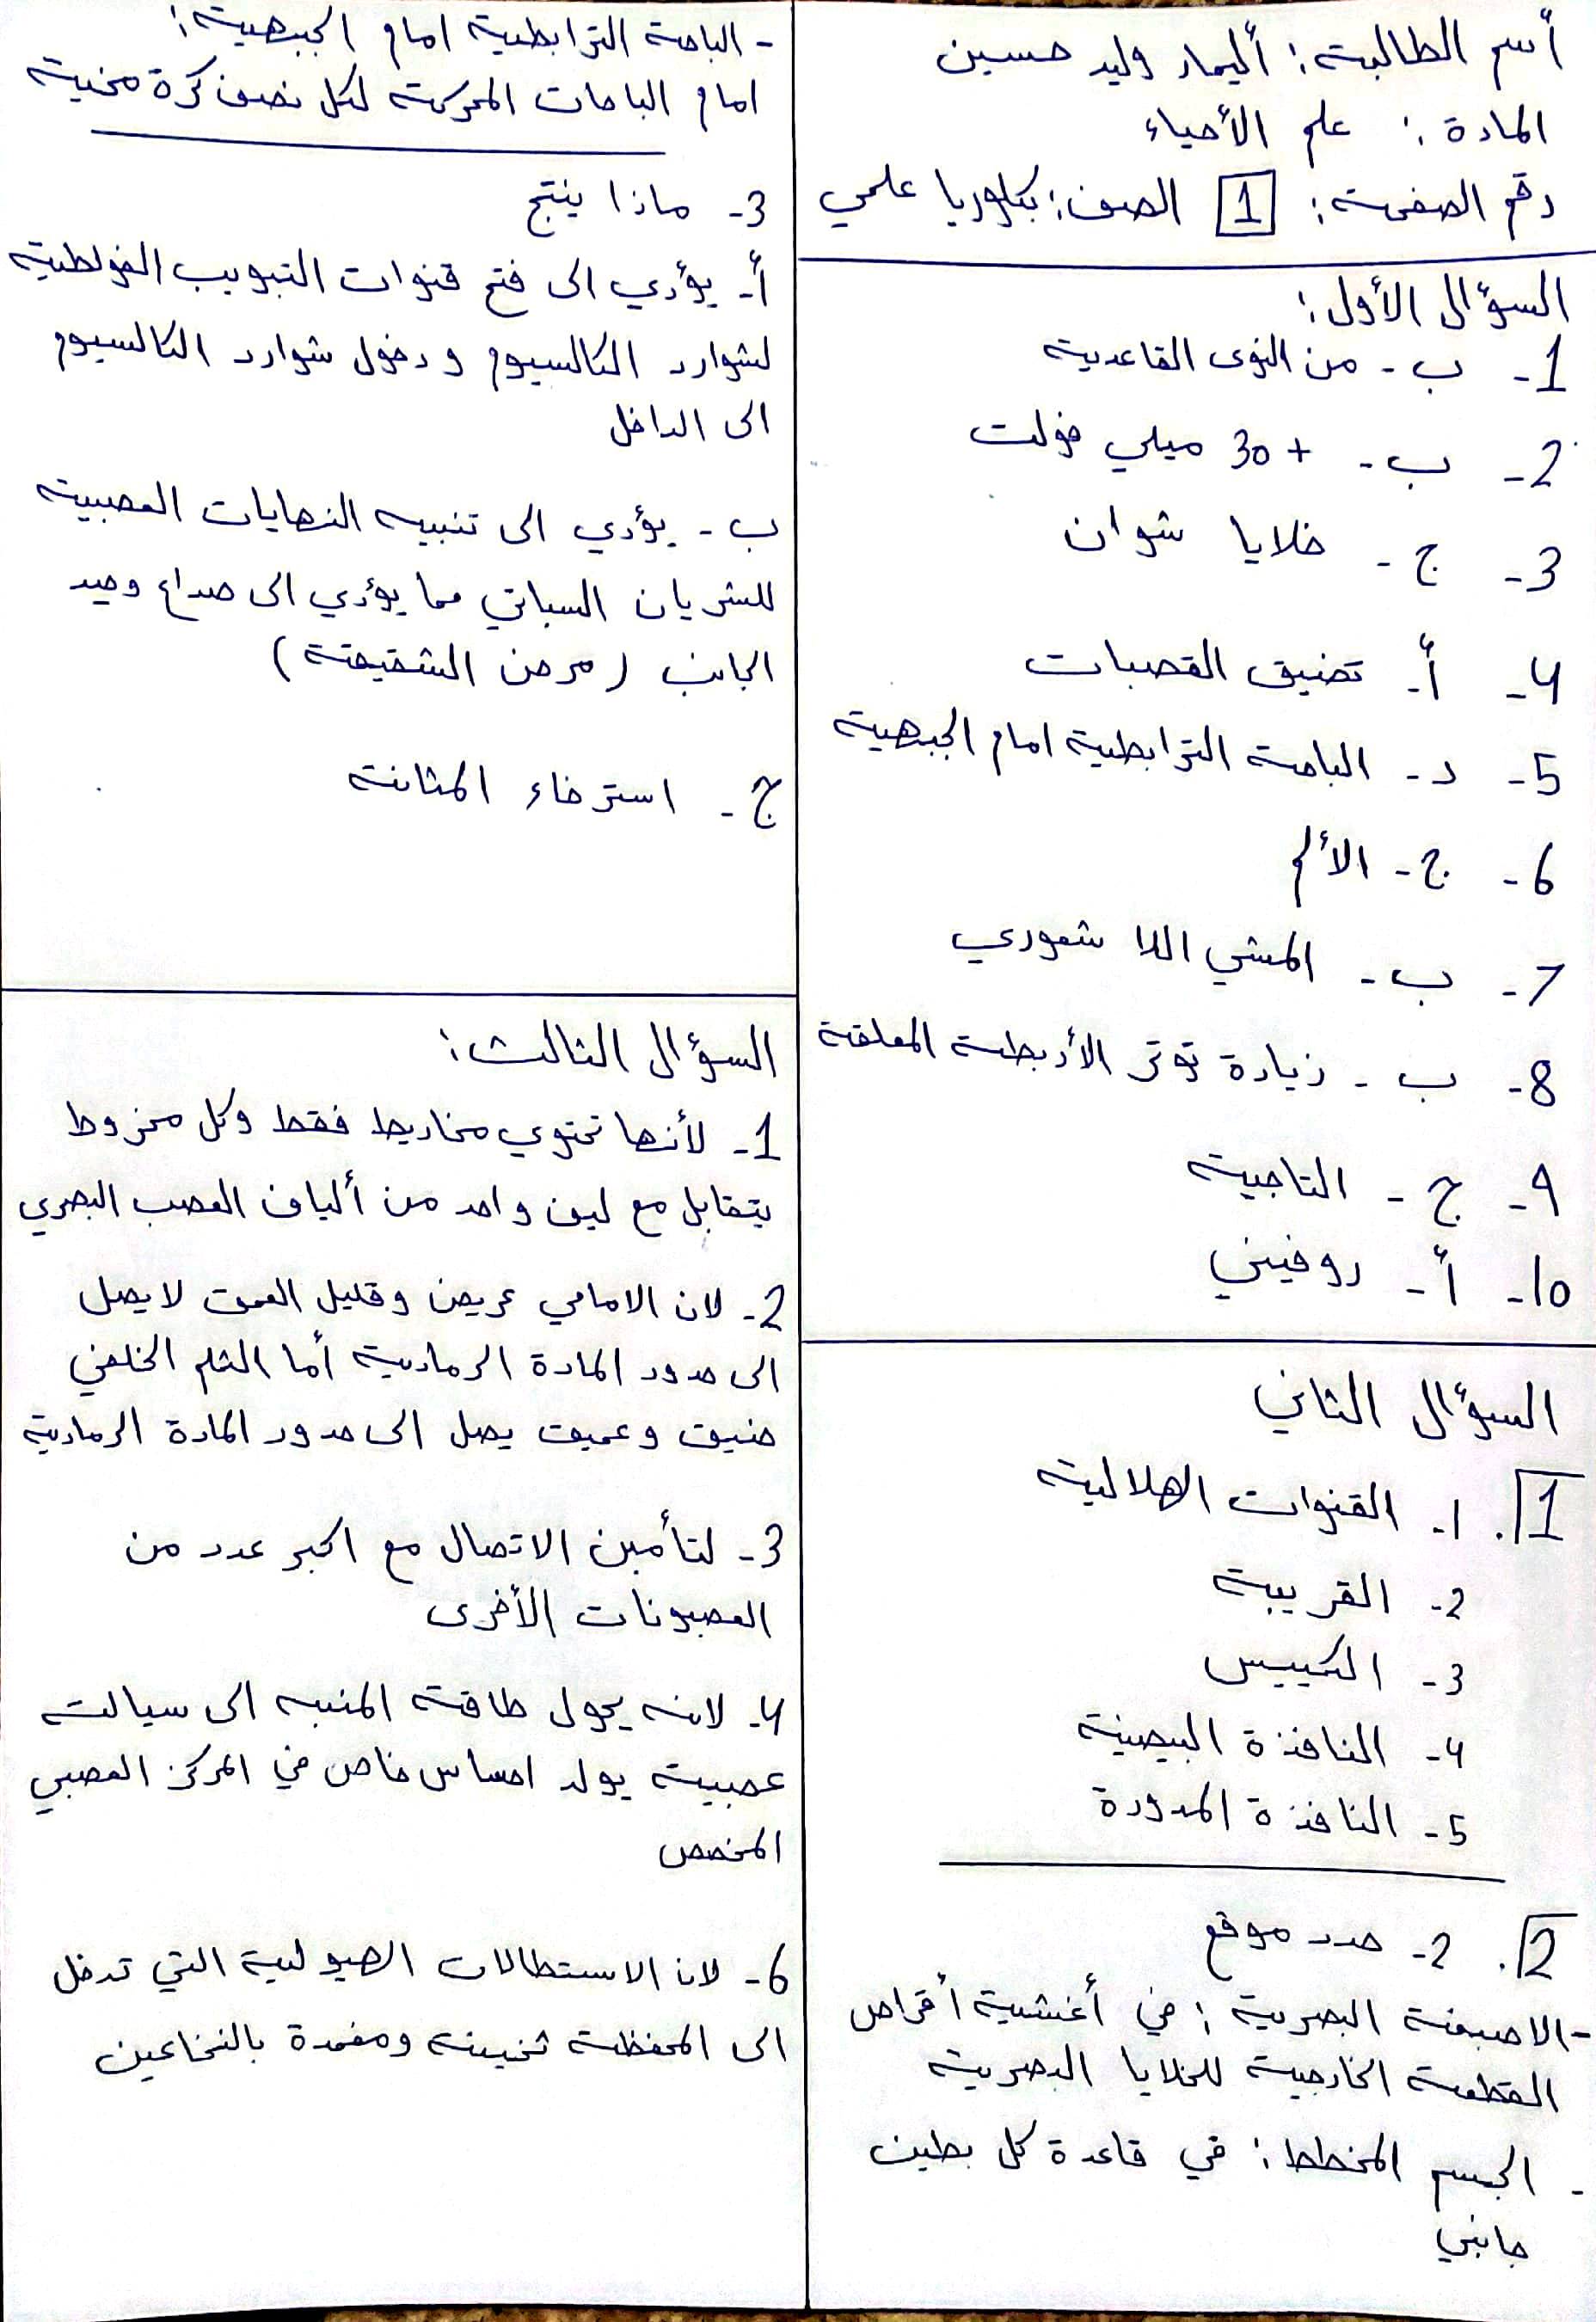 أسم الطالبة: أليمار وليد حسين
المادة: علم الأحياء
رقم الصفحة: 1 الصف: بكلوريا علمي
السؤال الأول:
1- ب- من النوى القاعدية
2- ب- + 30 ميلي فولت
3- ج- خلايا شوان
4- أ- تضيق القصبات
5- د- الباحة الترابطية امام الجبهية
6- ج- الألم
7- ب- المشي اللا شعوري
8- ب- زيادة توتر الأربطة المعلقة
9- ج- التاجية
10- أ- روفيني
السؤال الثاني
1. 1- القنوات الهلالية
2- القريبة
3- الكييس
4- النافذة البيضية
5- النافذة المدورة
2. 2- حدد موقع
-الاصبغة البصرية: في أغشية أقراص
القطعة الخارجية للخلايا البصرية
- الجسم المخطط: في قاعدة كل بطين
جانبي
- الباحة الترابطية امام الجبهية:
امام الباحات المحركة لكل نصف كرة مخية
3- ماذا ينتج
أ- يؤدي الى فتح قنوات التبويب الفولطية
لشوارد الكالسيوم و دخول شوارد الكالسيوم
الى الداخل
ب- يؤدي الى تنبيه النهايات العصبية
للشريان السباتي مما يؤدي الى صداع وحيد
الجانب (مرض الشقيقة)
ج- استرخاء المثانة
السؤال الثالث:
1- لأنها تحتوي مخاريط فقط وكل مخروط
يتقابل مع ليف واحد من ألياف العصب البصري
2- لان الامامي عريض وقليل العمق لا يصل
الى حدود المادة الرمادية أما الثلم الخلفي
ضيق وعميق يصل الى حدود المادة الرمادية
3- لتأمين الاتصال مع اكبر عدد من
العصبونات الأخرى
4- لانه يحول طاقة المنبه الى سيالة
عصبية يولد احساس خاص في المركز العصبي
المخصص
6- لان الاستطالات الهيولية التي تدخل
الى المحفظة ثخينة ومغمدة بالنخاعين